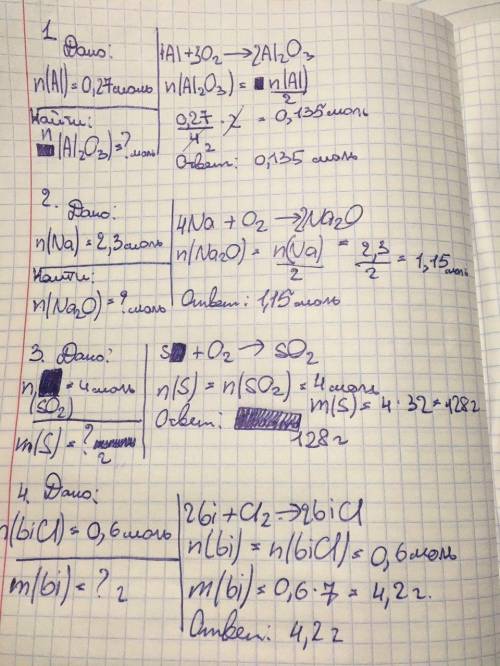 1.
Дано:
n(Al) = 0,27 моль
Найти:
n(Al₂O₃) = ? моль
4Al + 3O₂ → 2Al₂O₃
n(Al₂O₃) = n(Al)/2
0,27/4 2 · 2 = 0,135 моль
Ответ: 0,135 моль
2.
Дано:
n(Na) = 2,3 моль
Найти:
n(Na₂O) = ? моль
4Na + O₂ → 2Na₂O
n(Na₂O) = n(Na)/2 = 2,3/2 = 1,15 моль
Ответ: 1,15 моль
3. Дано:
n (SO₂) = 4 моль
m(S) = ? г
S + O₂ → SO₂
n(S) = n(SO₂) = 4 моль
m(S) = 4 · 32 = 128 г
Ответ: 128 г
4. Дано:
n(biCl) = 0,6 моль
m(bi) = ? г
2bi + Cl₂ → 2biCl
n(bi) = n(biCl) = 0,6 моль
m(bi) = 0,6 · 7 = 4,2 г.
Ответ: 4,2 г